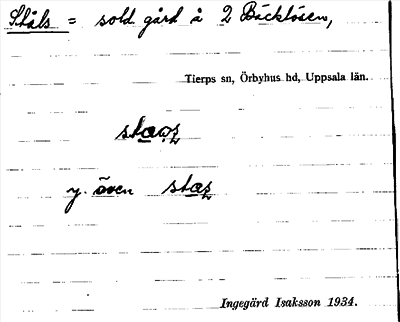 Ståls = sold gård å 2 Bäcklösen,
Tierps sn, Örbyhus hd, Uppsala län.
y. även
Ingegärd Isaksson 1934.